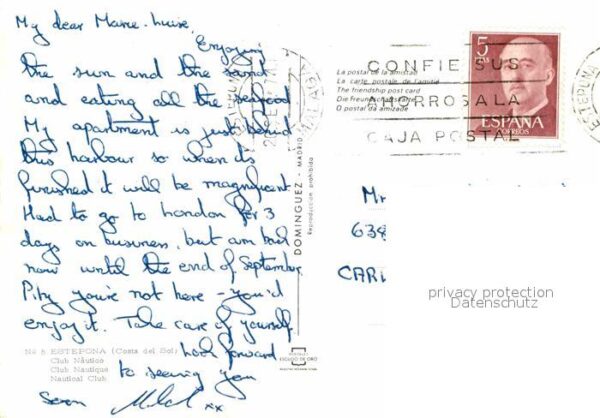 My dear Marie-Luise,
Enjoying
the sun and the sand
and eating all the seafood
My apartment is just behind
this harbour so when it's
finished it will be magnificent
Had to go to London for 3
days on business, but am back
now until the end of September
Pity you're not here - you'd
enjoy it. Take care of yourself
look forward
to seeing you
soon
xx
No 5 ESTEPONA (Costa del Sol)
Club Náutico
Club Nautique
Nautical Club
DOMINGUEZ - MADRID
Reproducción prohibida
ESCUDO DE ORO
La postal de la amistad
La carte postale de l'amitié
The friendship post card
Die Freundschaftskarte
O postal da amizade
CONFIE SUS
AHORROS A LA
CAJA POSTAL
5
PTAS
ESPAÑA
CORREOS
ESTEPONA
638
privacy protection
Datenschutz